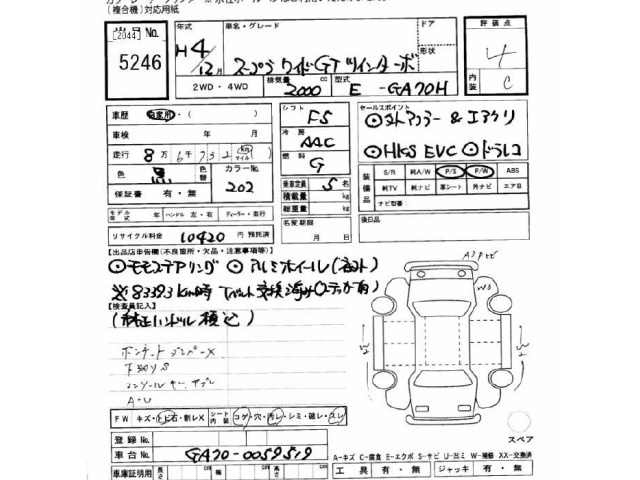 (複合機)対応用紙
出品 No.
[2044]
5246
年式
H4/12月
車名・グレード
スープラ ワイドGTツインターボ
ドア
形状
2WD・4WD
排気量
2000
cc
型式
E-GA70H
評価点
4
内装
C
車歴
自家用・( )
車検
年 月
走行
8万6千732
km
マイル
色
黒
色替
カラーNo.
202
保証書
有・無
モデル年式
年
ハンドル
左・右
ディーラー・並行
リサイクル料金
10420
円 預託済
シフト
F5
冷房
AAC
燃料
G
乗車定員
5
名
積載量
kg
総重量
kg
名変期限
月 日
セールスポイント
◎ストアッラー & エアクリ
◎HKS EVC ◎ドラレコ
装備品
S/R
純A/W
P/S
P/W
ABS
純TV
純ナビ
革シート
外ナビ
エアB
ナビ型番:
後日品
【出品店申告欄(不良箇所・欠品・注意事項等)】
◎モモステアリング ◎アルミホイール(ネオト)
※83393km時 Tベルト交換済み(ステッカー有)
【検査員記入】
(純正ハンドル積込)
ボンネットダンパーX
下回りS
コンソールキズ
A・U
FW
キズ・トビ石・割レX
シート内装
コゲ・穴・汚レ・シミ・破レ・スレ
登録 No.
車台 No.
GA70-0059519
車庫証明用
長さ
cm
幅
cm
高さ
cm
スペア
A-キズ C-腐食 E-エクボ S-サビ U-凹ミ W-補修 XX-交換済
工具
有・無
ジャッキ
有・無